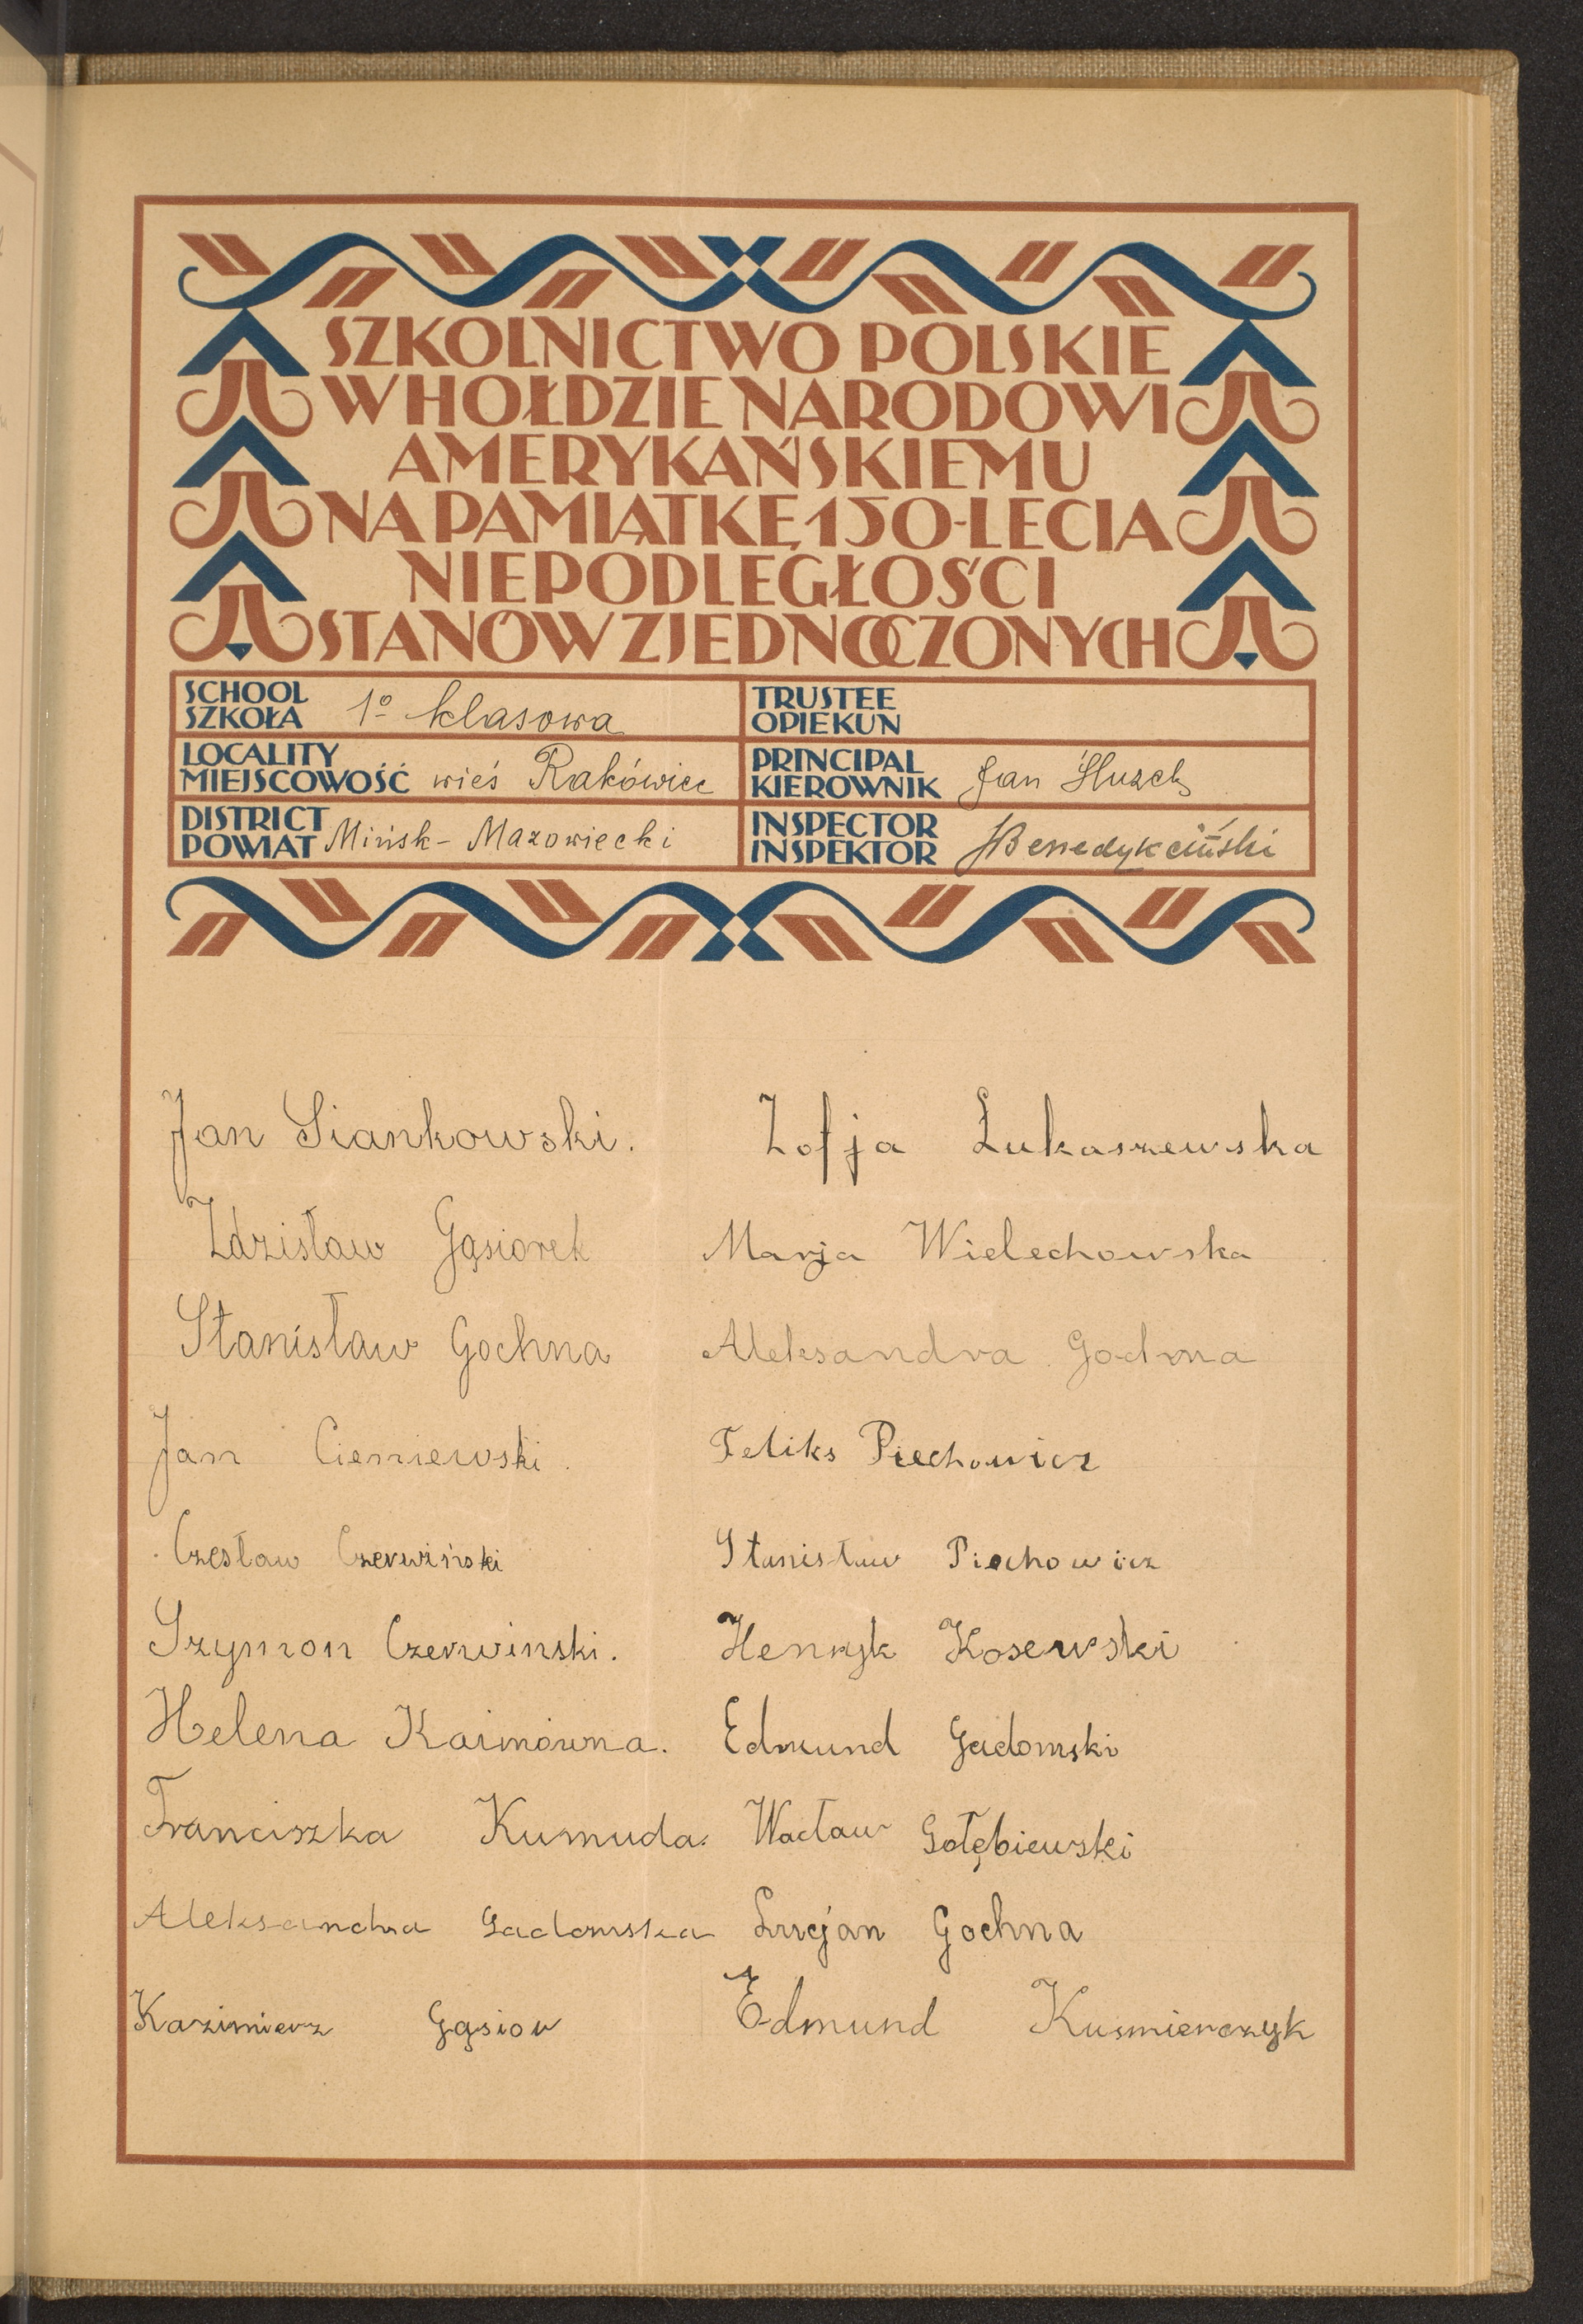 SZKOLNICTWO POLSKIE
W HOŁDZIE NARODOWI
AMERYKAŃSKIEMU
NA PAMIĄTKĘ 150-LECIA
NIEPODLEGŁOŚCI
STANÓW ZJEDNOCZONYCH
SCHOOL
SZKOŁA 1º klasowa
TRUSTEE
OPIEKUN
LOCALITY
MIEJSCOWOŚĆ wieś Rakówiec
PRINCIPAL
KIEROWNIK Jan
DISTRICT
POWIAT Mińsk-Mazowiecki
INSPECTOR
INSPEKTOR JBenedykciński
Jan Siankowski.
Zdzisław Gąsiorek
Stanisław Gochna
Jan Cieniewski.
Czesław Czerwiński
Szymon Czerwinski.
Helena Kaimówna.
Franciszka Kumuda.
Aleksandra Gadomska
Kazimierz Gąsior
Zofja Łukaszewska
Marja Wielechowska
Aleksandra Gochna
Feliks Piechowicz
Stanisław Piechowicz
Henryk Kosewski
Edmund Gadomski
Wacław Gołębiewski
Lucjan Gochna
Edmund Kusmierczyk